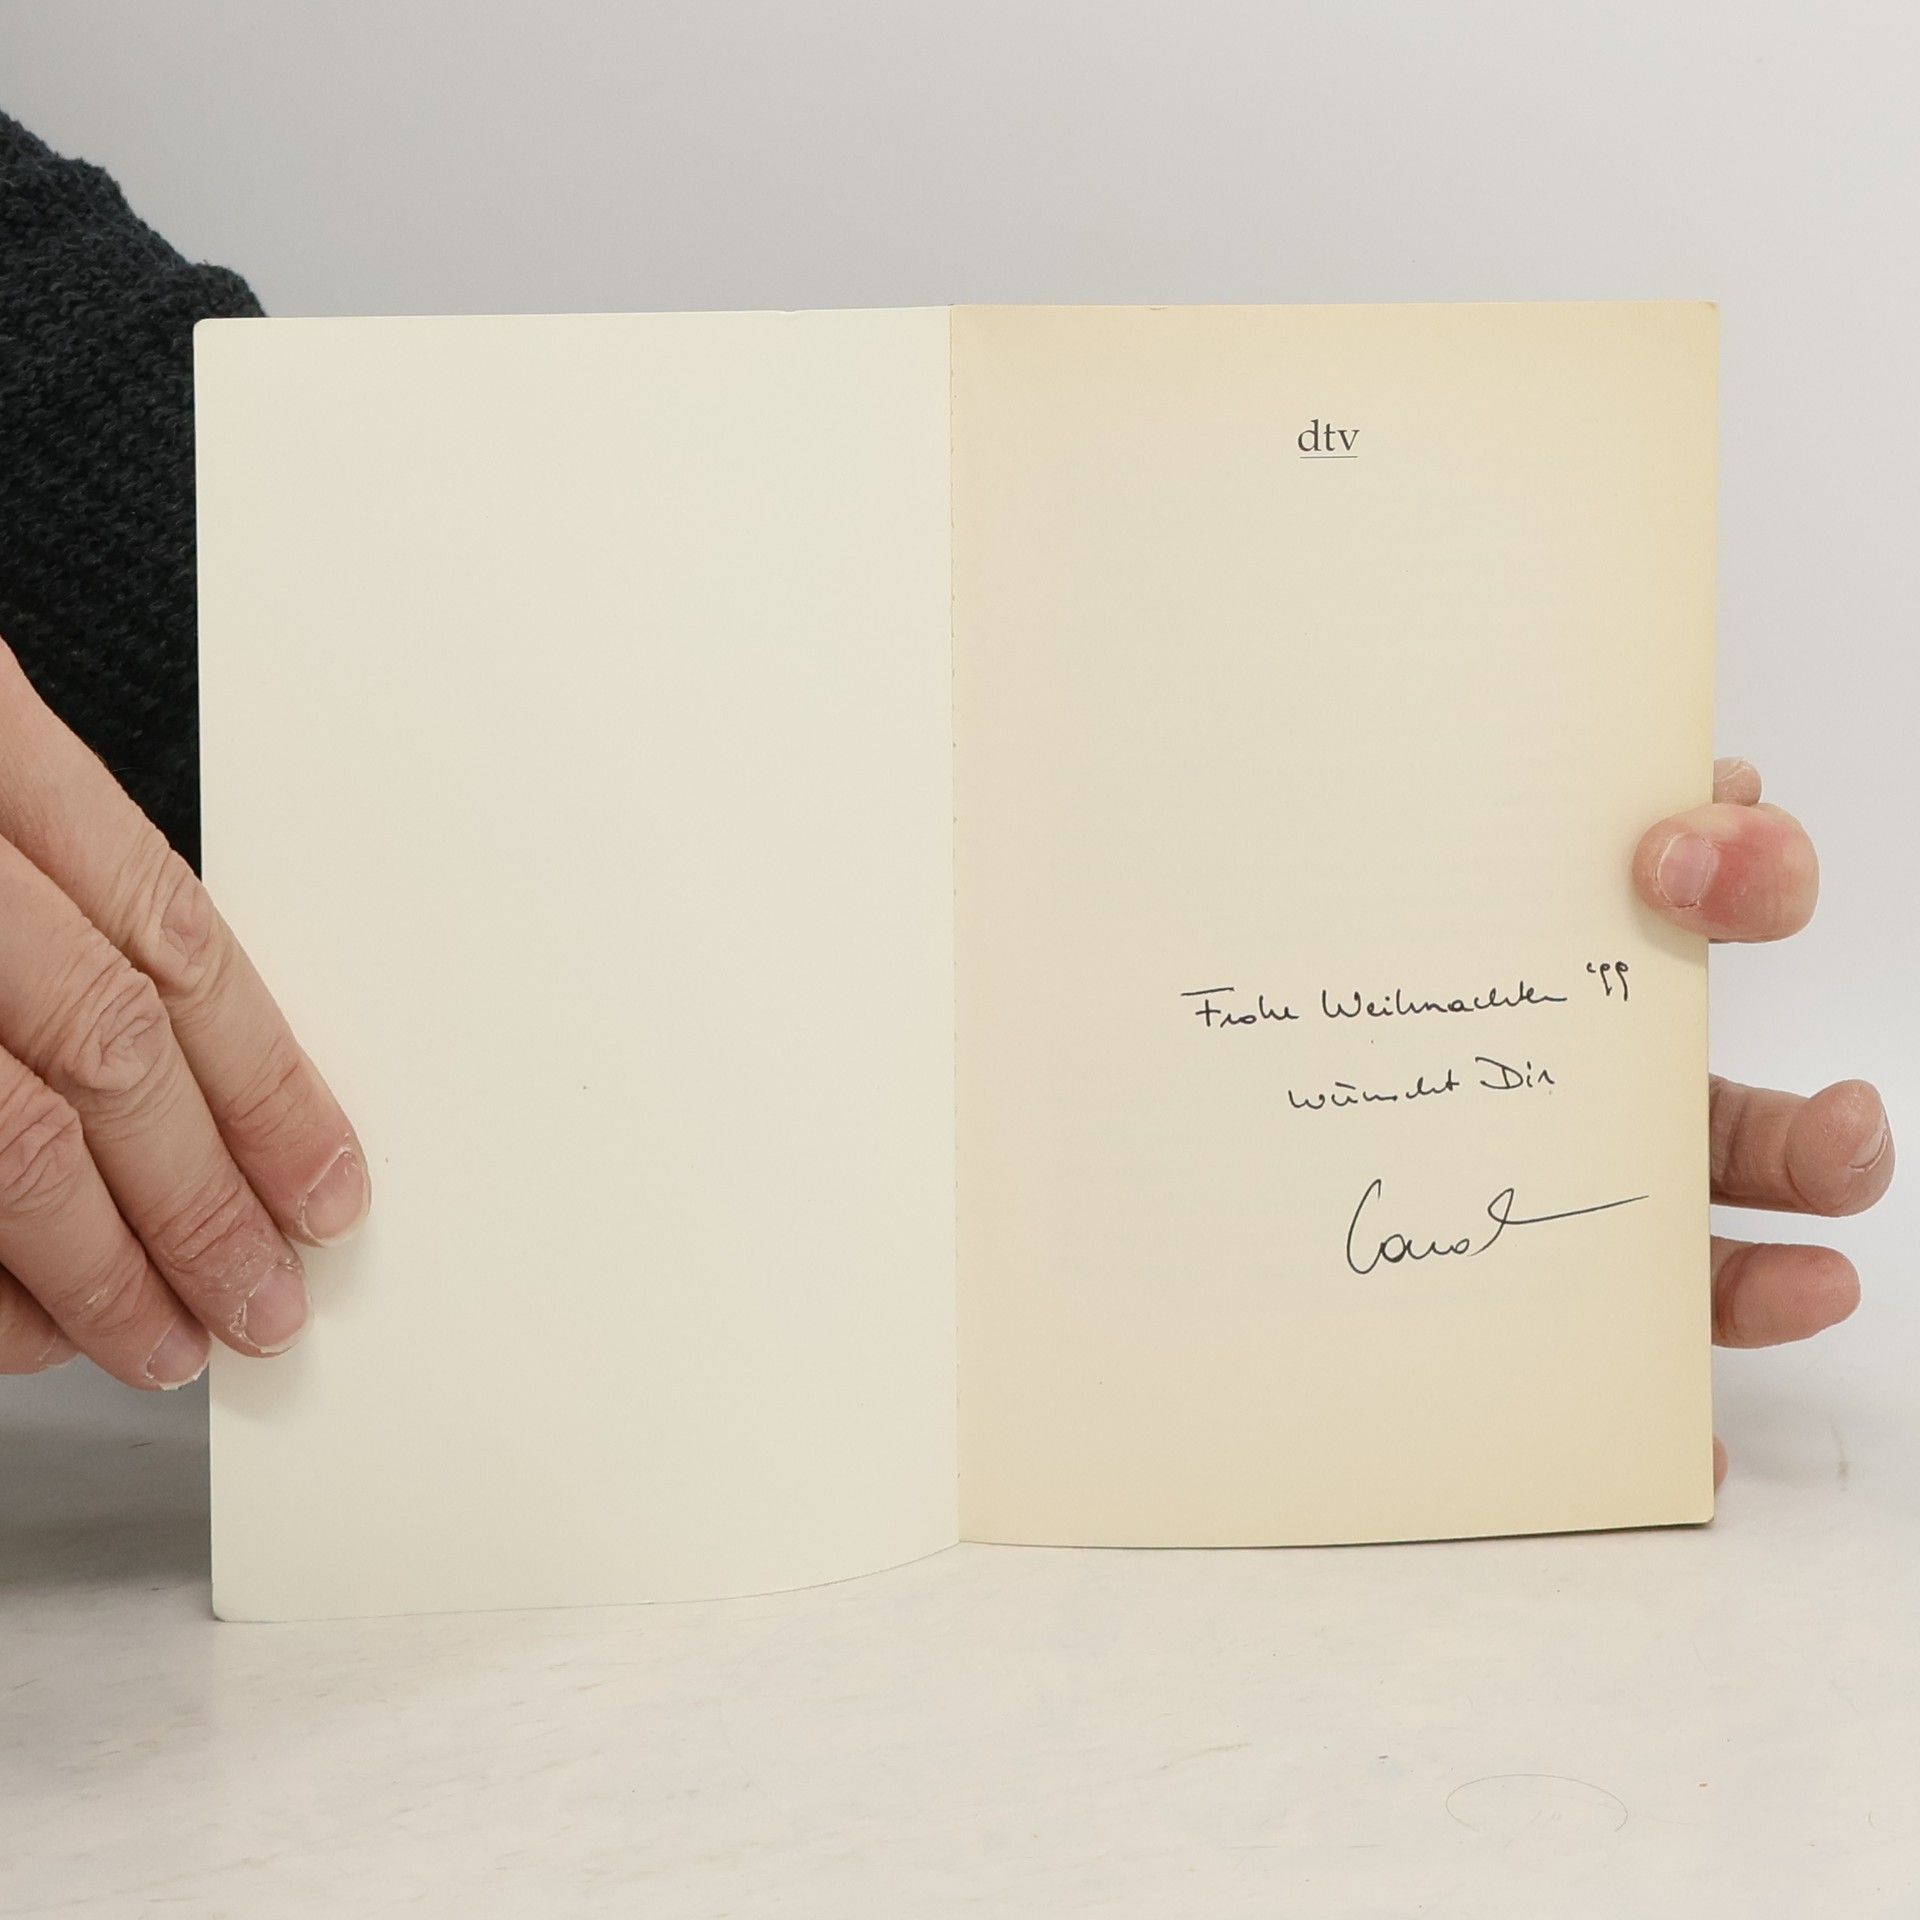 dtv
Frohe Weihnachten '99
wünscht Dir
Carol